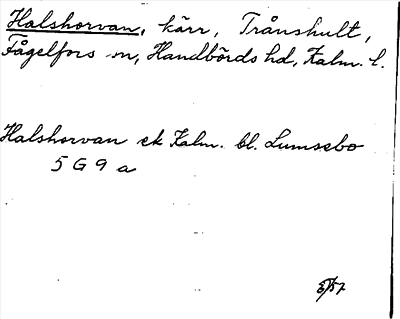 Halshorvan, kärr, Trånshult,
Fågelfors sn, Handbörds hd, Kalm. l.
Halshorvan ek Kalm. bl. Lumsebo
5 G 9 a